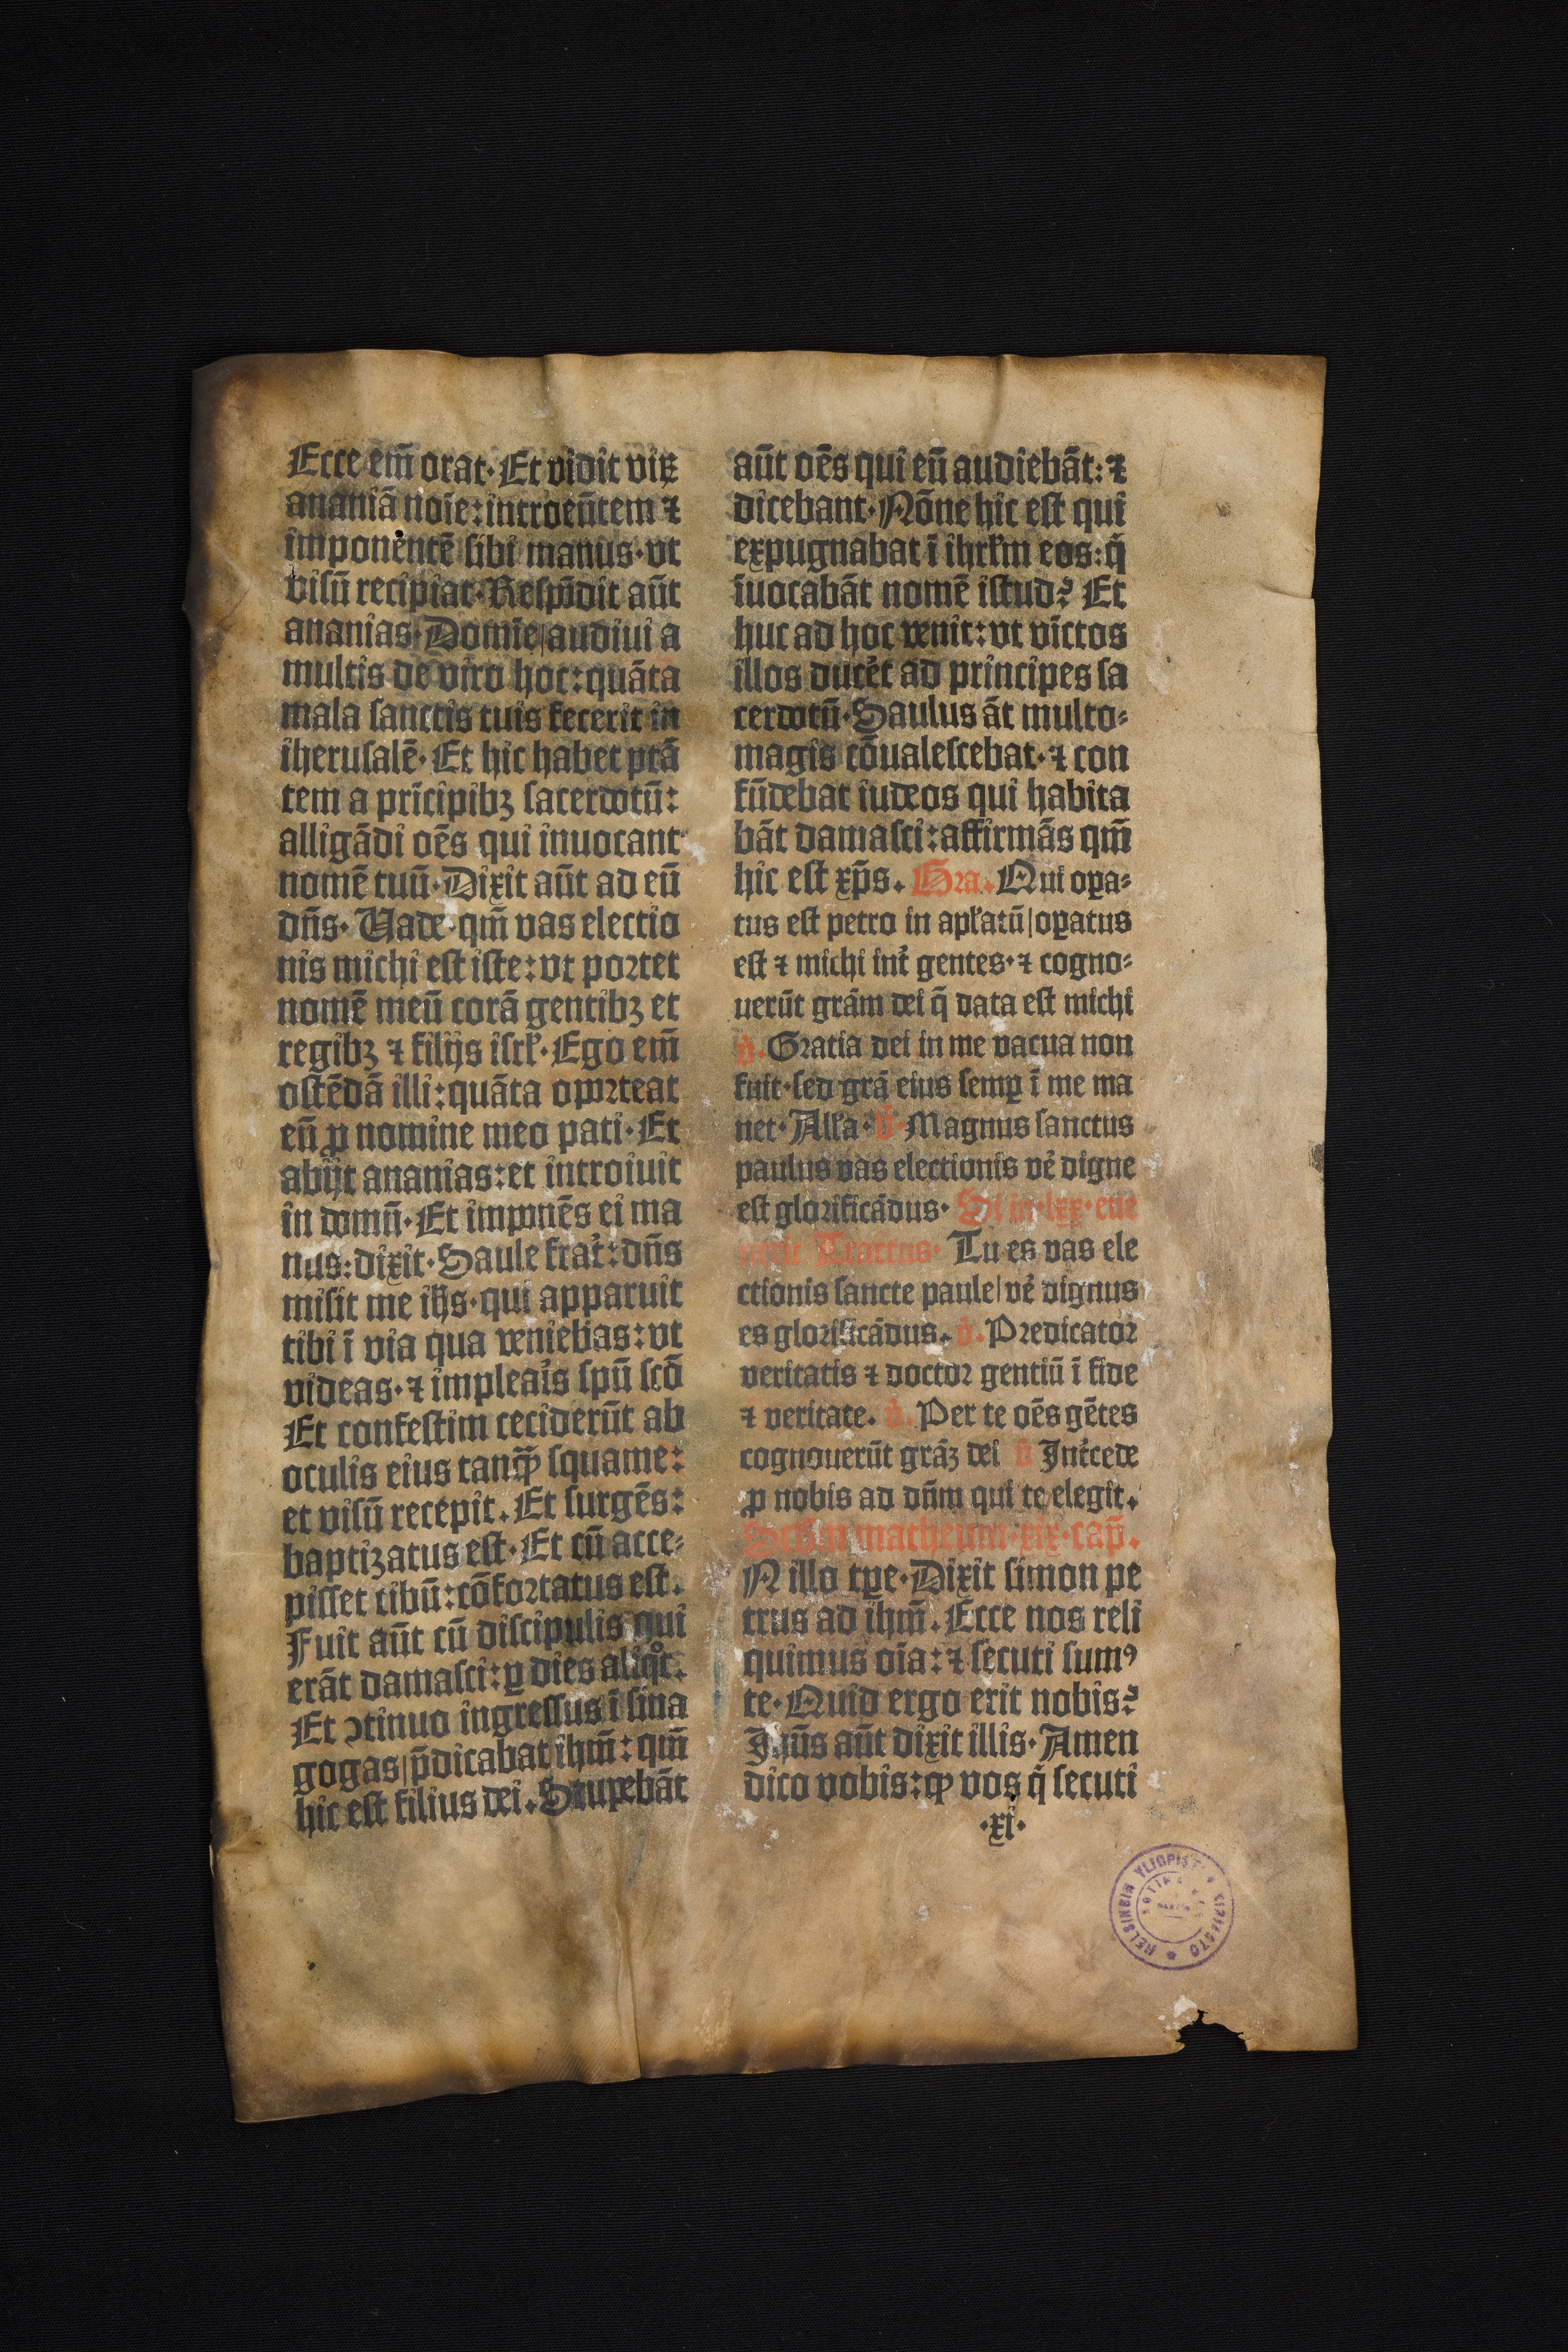 Ecce em̄ orat· Et vidit viꝝ
ananiā noīe: introeūtem ⁊
imponentē sibi manus· vt
visū recipiat· Respōdit aūt
ananias· Domīe| audiui a
multis de viro hoc: quāta
mala sanctis tuis fecerit in
iherusalē· Et hic habet ptā
tem a prīcipibꝫ sacerdotū:
alligādi oēs qui inuocant
nomē tuū· Dixit aūt ad eū
dn̄s· Vade· qm̄ vas electio
nis michi est iste: vt portet
nomē meū corā gentibꝫ et
regibꝫ ⁊ filijs isrl̄· Ego em̄
ostēdā illi: quāta oporteat
eū ꝓ nomine meo pati· Et
abijt ananias: et introiuit
in domū· Et imponēs ei ma
nus: dixit· Saule frat̓: dn̄s
misit me ih̄s· qui apparuit
tibi ī via qua veniebas: vt
videas· ⁊ impleaĩs spū scō
Et confestim ceciderūt ab
oculis eius tanqꝫ̄ squame:
et visū recepit. Et surgēs:
baptizatus est· Et cū acce⸗
pisset cibū: cōfortatus est.
Fuit aūt cū discipulis qui
erāt damasci: ꝑ dies aliqͦt.
Et ↄtinuo ingressus ī sina
gogas| p̄dicabat ihm̄: qm̄
hic est filius dei. Stupebāt
aūt oēs qui eū audiebāt: ⁊
dicebant· Nōne hic est qui
expugnabat ī ihrl̄m eos: q̇
īuocabāt nomē istud? Et
huc ad hoc venit: vt vīctos
illos ducẽt ad principes sa
cerdotū· Saulus āt multo⸗
magis cōualescebat· ⁊ con
fūdebat iudeos qui habita
bāt damasci: affirmās qm̄
hic est xp̄s. Gra. Qui oꝑa⸗
tus est petro in apl̄atū| oꝑatus
est ⁊ michi int̓ gentes· ⁊ cogno⸗
uerūt grām dei q̄ data est michi
v̇. Gratia dei in me vacua non
fuit· sed grā eius semꝑ ī me ma
net· All̄a· v̄· Magnus sanctus
paulus vas electionis vẽ digne
est glorificādus· Si in· lxx· eue
nerit Tractus· Tu es vas ele
ctionis sancte paule| vẽ dignus
es glorificādus. v̇. Predicator
veritatis ⁊ doctor gentiū ī fide
⁊ veritate. v̇. Per te oēs gētes
cognouerūt grāꝫ dei v̇ Int̓cede
ꝓ nobis ad dn̄m qui te elegit.
Scd̄m matheum· xix· cap̄.
N illo tꝑe· Dixit simon pe
trus ad ihm̄. Ecce nos reli
quimus oīa: ⁊ secuti sumꝰ
te· Quid ergo erit nobis?
Ihūs aūt dixit illis· Amen
dico vobis: ꝙ vos q̇ secuti
·xi·
HELSINGIN YLIOPISTON KIRJASTO